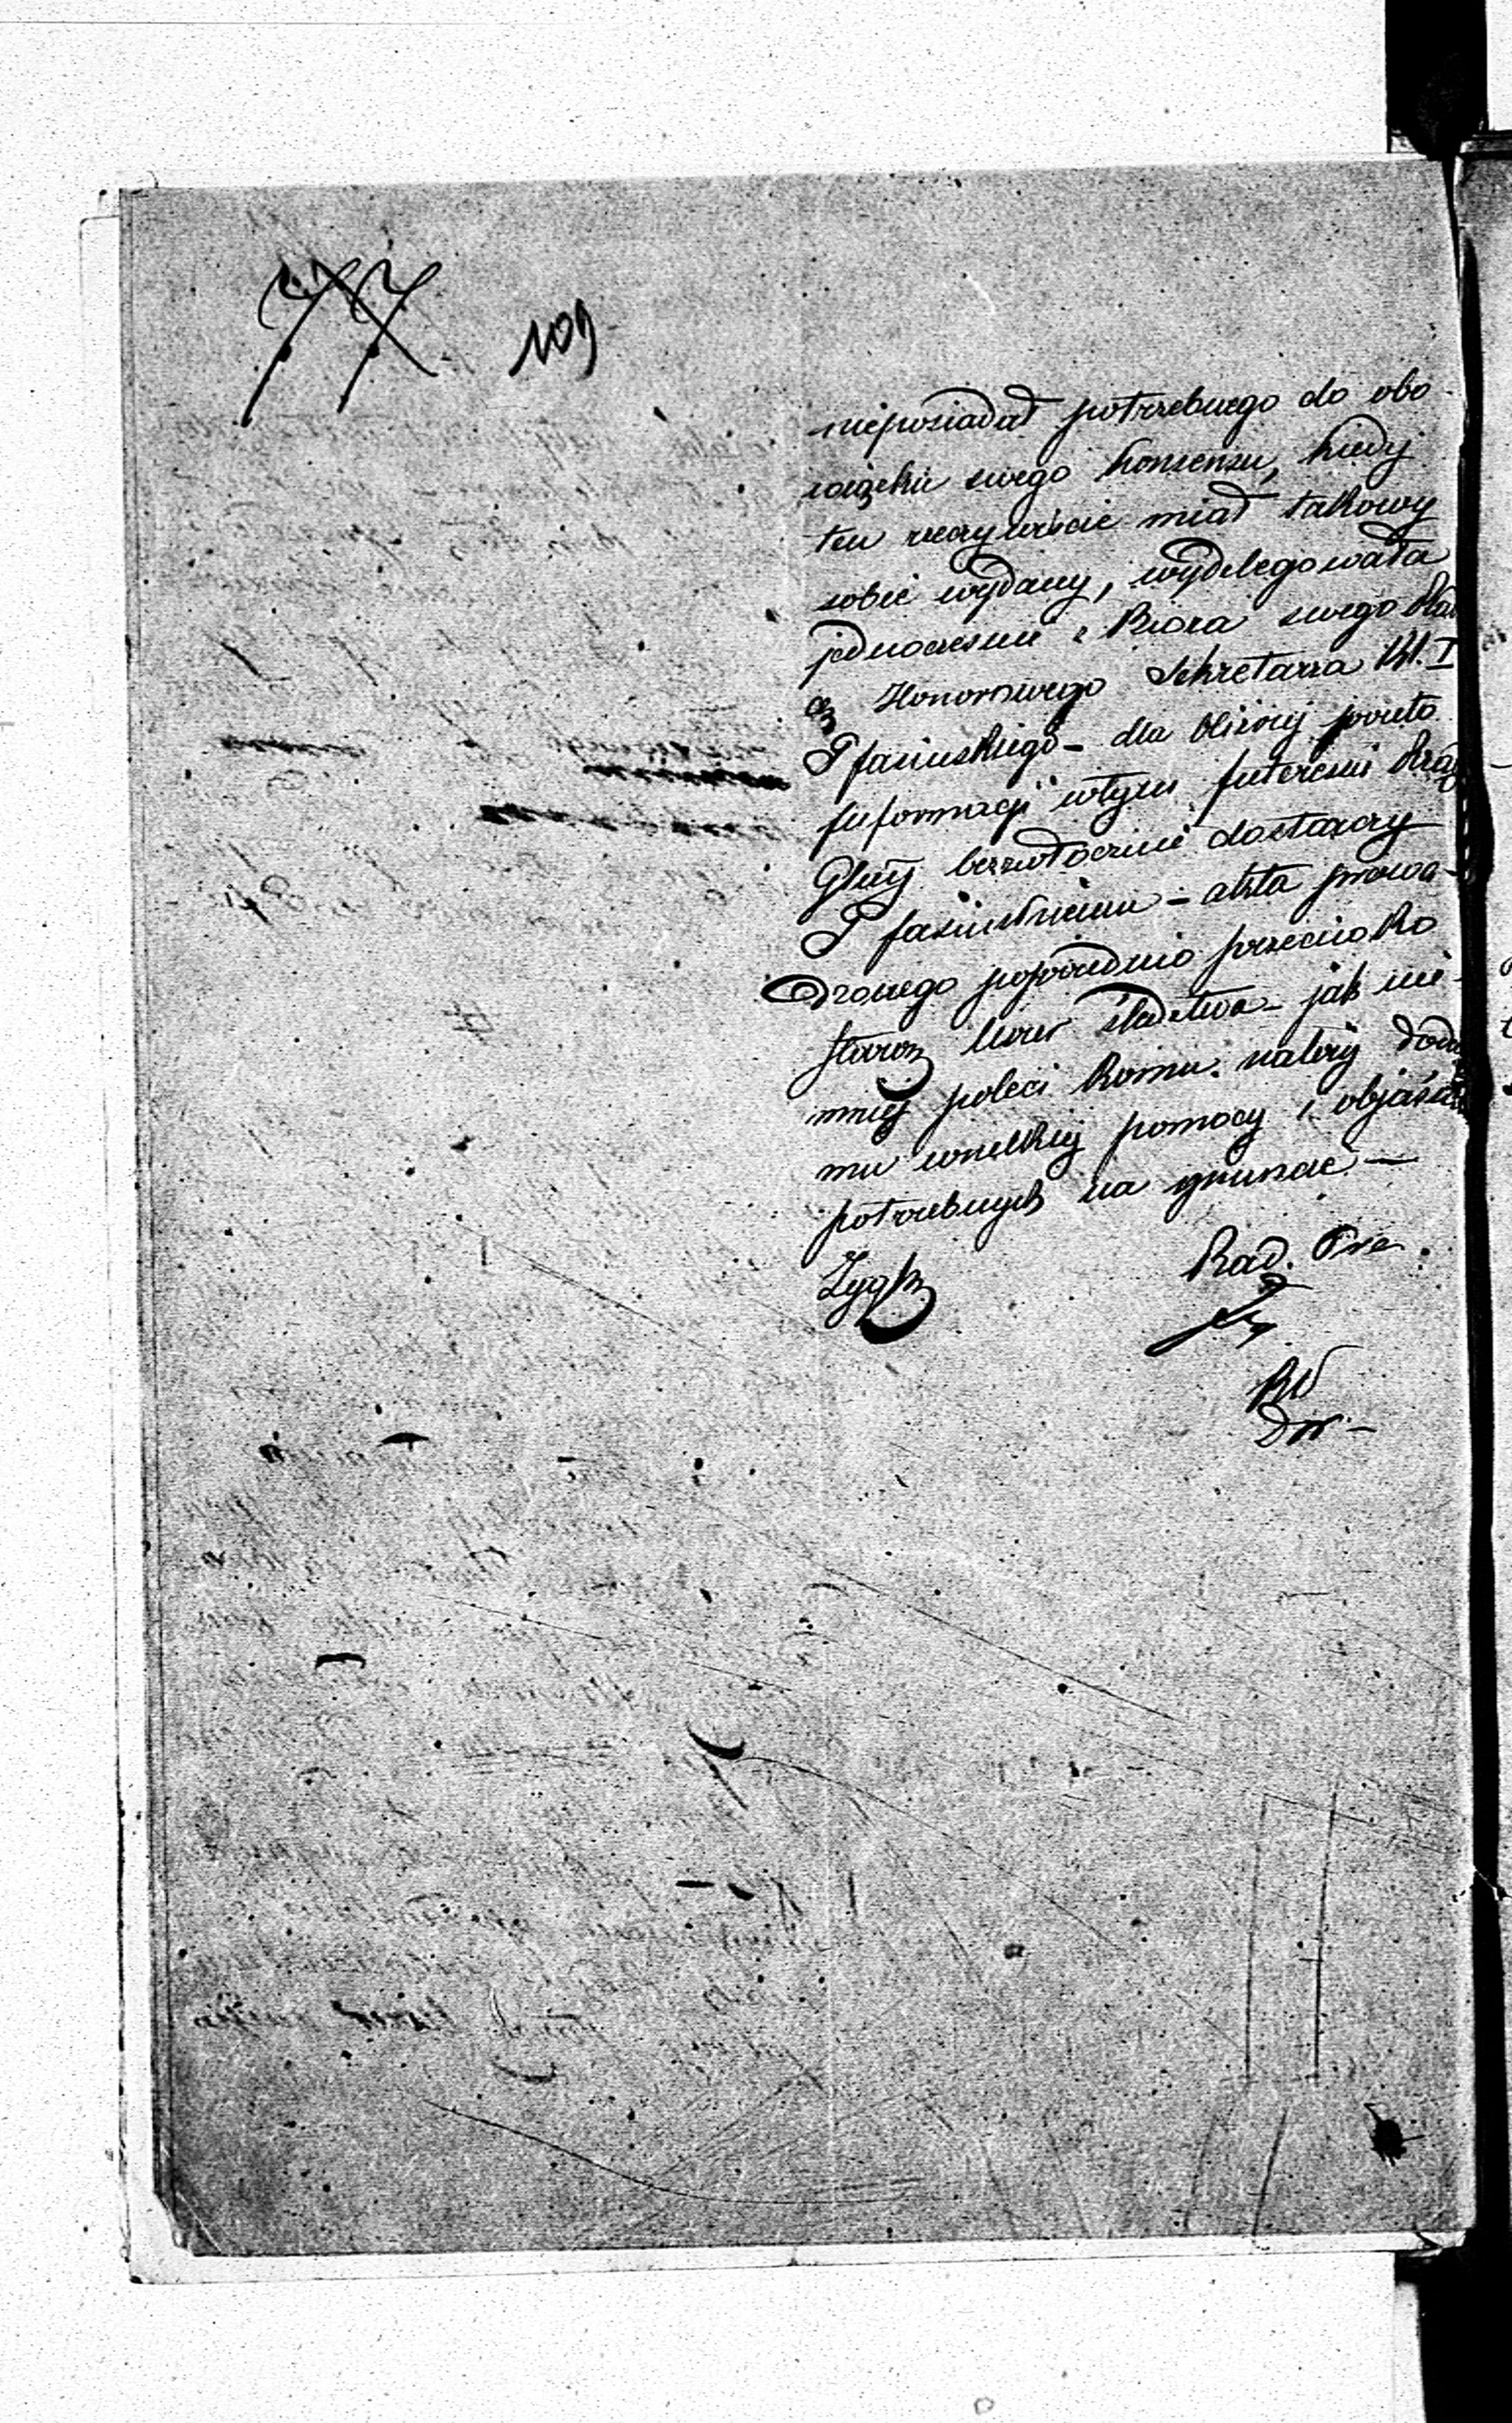 77 109
nieposiadał potrzebnego do obo
wiązku swego konsensu, kiedy
ten rzeczywiście miał takowy
sobie wydany, wydelegowała
jednocześnie z Biora swego
Honorowego Sekretarza Kl. I
P Jasiuskiego – dla bliższej
informacji wtym interesie
bezzwłocznie dostarczy
P Jasiuskiemu – akta prowa-
dzonego poprzednio przeciwko
śledztwa – jak nie-
mniej poleci komu należy
mu wszelkiej pomocy i objaśn
potrzebnych na gruncie –
Rad. Pre
Dyr –